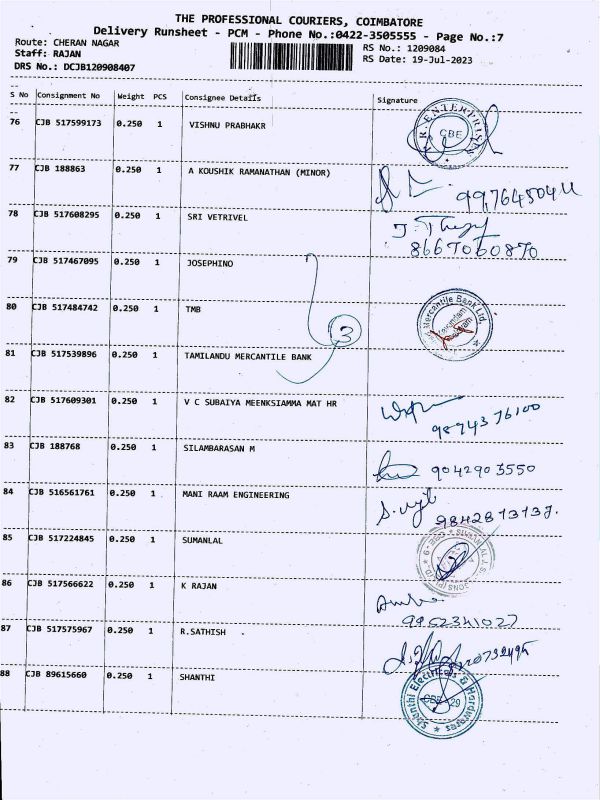 THE PROFESSIONAL COURIERS, COIMBATORE
Delivery Runsheet - PCM - Phone No.:0422-3505555 - Page No.:7
Route: CHERAN NAGAR
RS No.: 1209084
Staff: RAJAN
RS Date: 19-Jul-2023
DRS No.: DCJB120908407
S No Consignment No Weight PCS Consignee Details Signature
76 CJB 517599173 0.250 1 VISHNU PRABHAKR
ENTERPRISES CBE
77 CJB 188863 0.250 1 A KOUSHIK RAMANATHAN (MINOR)
78 CJB 517608295 0.250 1 SRI VETRIVEL
8667060870
79 CJB 517467095 0.250 1 JOSEPHINO
80 CJB 517484742 0.250 1 TMB
Mercantile Bank Ltd.
3
81 CJB 517539896 0.250 1 TAMILANDU MERCANTILE BANK
82 CJB 517609301 0.250 1 V C SUBAIYA MEENKSIAMMA MAT HR
9874376100
83 CJB 188768 0.250 1 SILAMBARASAN M
9042903550
84 CJB 516561761 0.250 1 MANI RAAM ENGINEERING
9842813137
85 CJB 517224845 0.250 1 SUMANLAL
86 CJB 517566622 0.250 1 K RAJAN
9952341027
87 CJB 517575967 0.250 1 R.SATHISH
88 CJB 89615660 0.250 1 SHANTHI
Shanthi Electricals & Hardwares